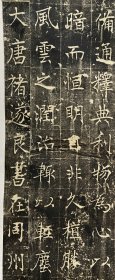 備通釋典利物為心以
暗而恒明自非久植勝
風雲之潤治輒以輕塵
大唐褚遂良書在同州